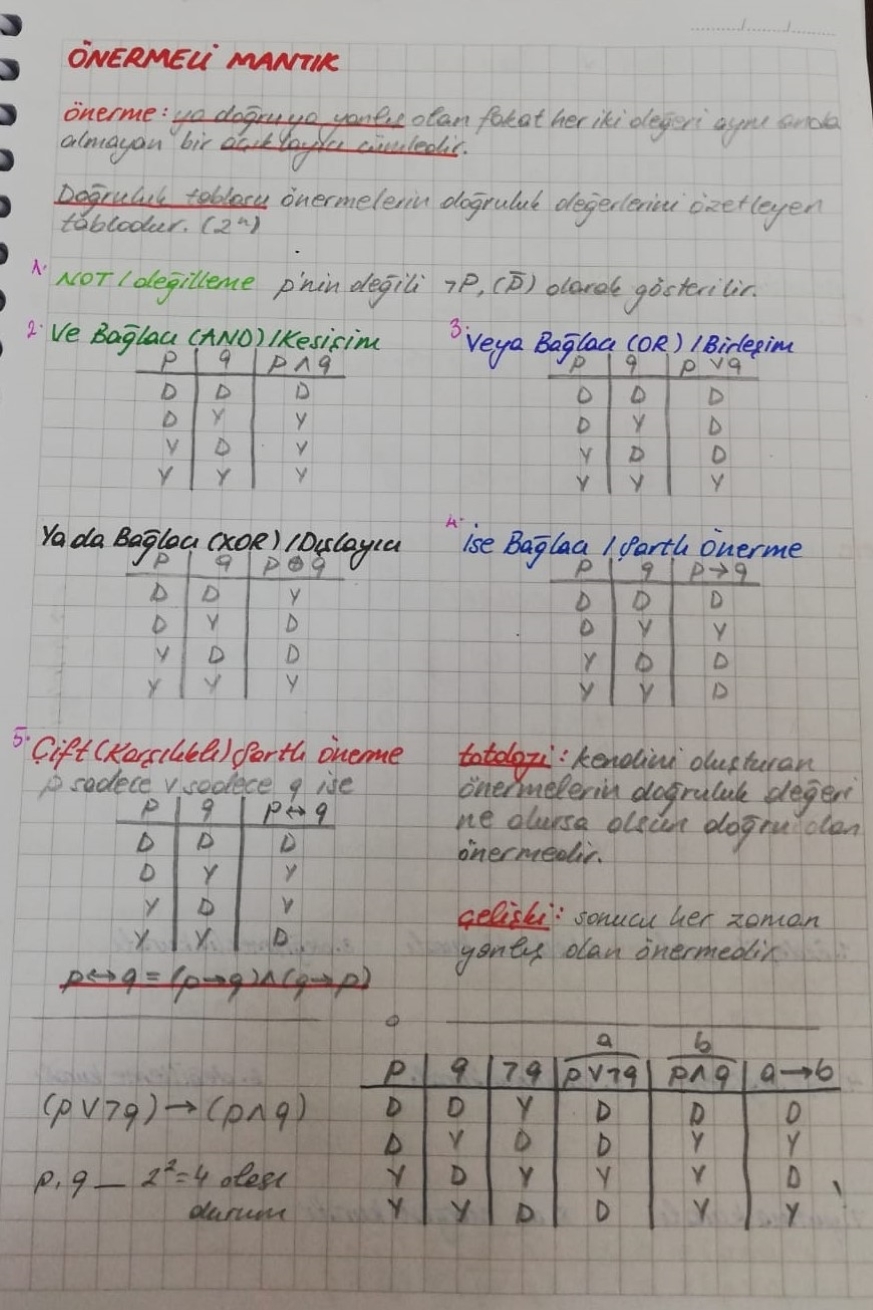 ÖNERMELİ MANTIK
önerme: ya doğru ya yanlış olan fakat her iki değeri aynı anda
almayan bir açıklayıcı cümledir.
Doğruluk tablosu önermelerin doğruluk değerlerini özetleyen
tablodur. (2ⁿ)
1. NOT / değilleme p'nin değili ¬P, (p̄) olarak gösterilir.
2. Ve Bağlacı (AND) / Kesişim
P | q | p ∧ q
D | D | D
D | Y | Y
Y | D | Y
Y | Y | Y
3. Veya Bağlacı (OR) / Birleşim
P | q | p ∨ q
D | D | D
D | Y | D
Y | D | D
Y | Y | Y
Ya da Bağlacı (XOR) / Dışlayıcı
P | q | p ⊕ q
D | D | Y
D | Y | D
Y | D | D
Y | Y | Y
4. ise Bağlacı / Şartlı Önerme
P | q | p → q
D | D | D
D | Y | Y
Y | D | D
Y | Y | D
5. Çift (Karşılıklı) Şartlı önerme
p sadece v sadece q ise
P | q | p ↔ q
D | D | D
D | Y | Y
Y | D | Y
Y | Y | D
p ↔ q = (p → q) ∧ (q → p)
totoloji: kendini oluşturan
önermelerin doğruluk değeri
ne olursa olsun doğru olan
önermedir.
çelişki: sonucu her zaman
yanlış olan önermedir
(p ∨ ¬q) → (p ∧ q)
p, q — 2² = 4 olası
durum
a b
P | q | ¬q | p ∨ ¬q | p ∧ q | a → b
D | D | Y | D | D | D
D | Y | D | D | Y | Y
Y | D | Y | Y | Y | D
Y | Y | D | D | Y | Y